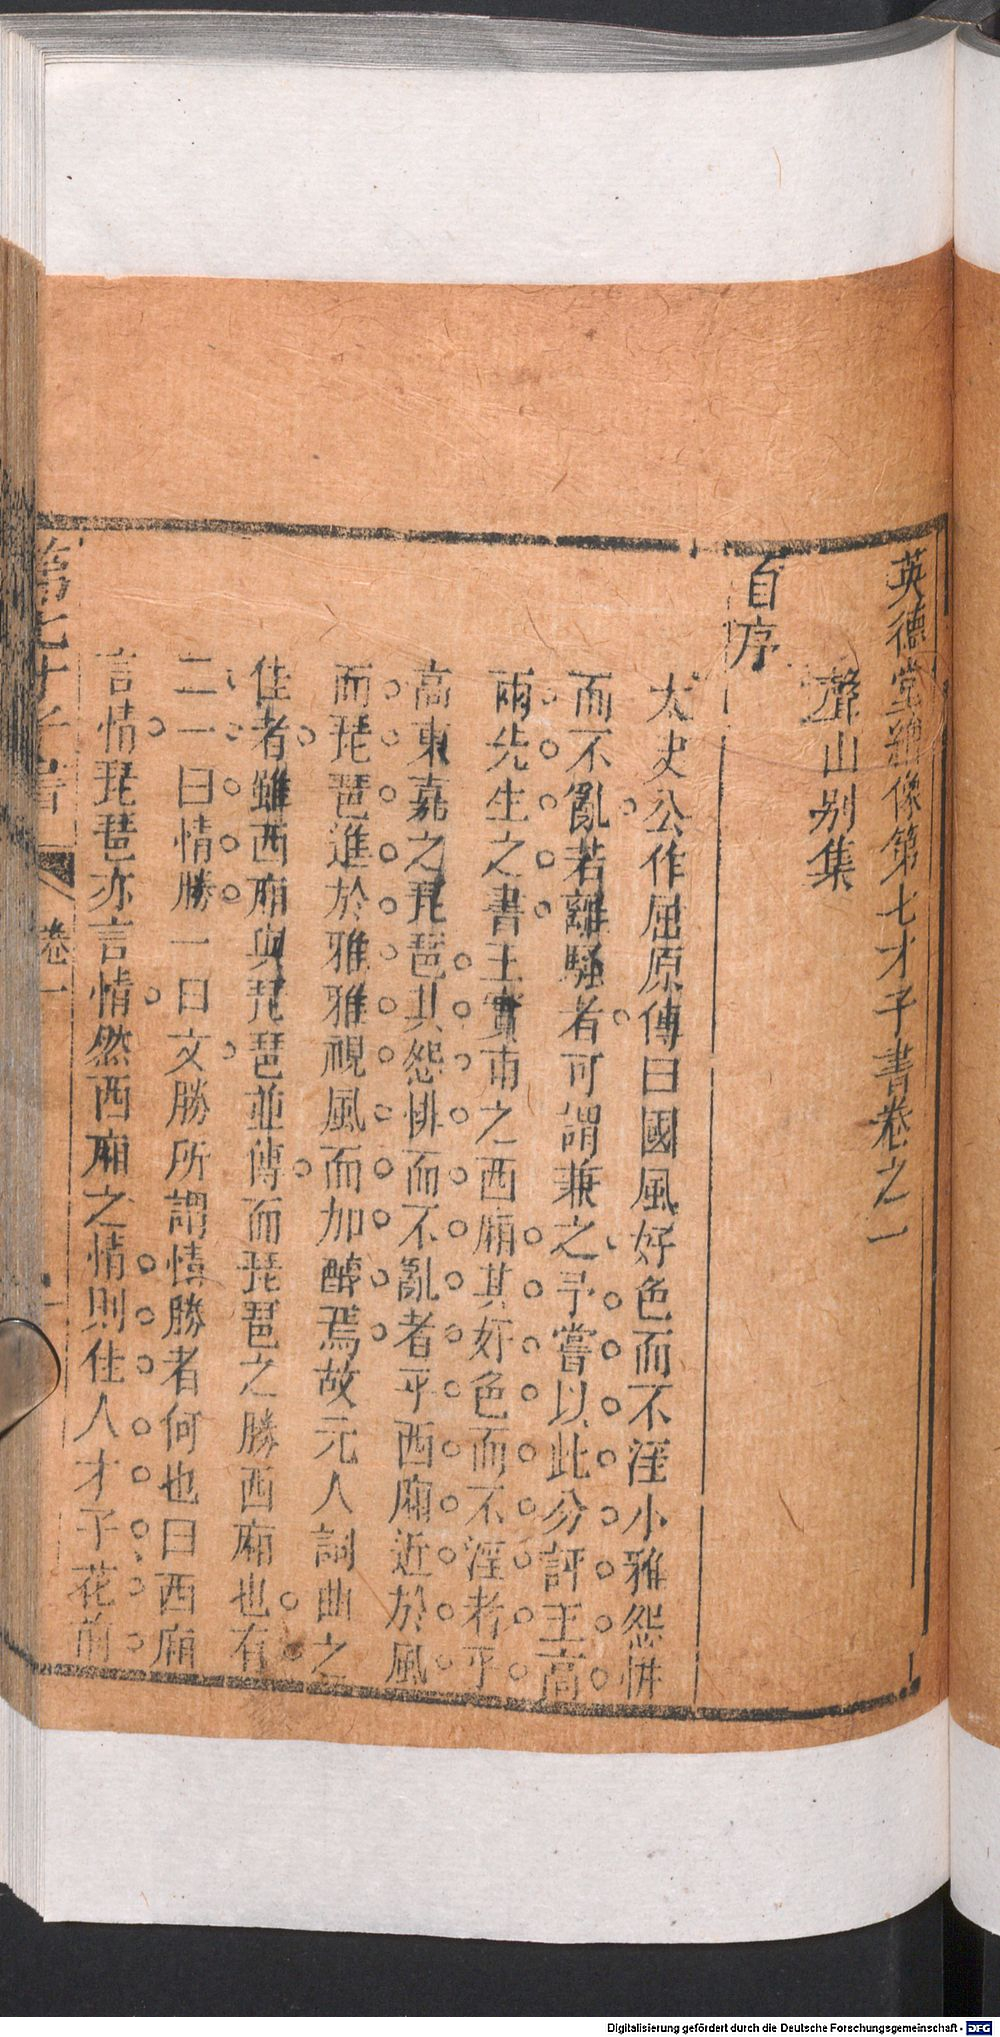 英德堂繪像第七才子書卷之一
聲山别集
自序
太史公作屈原傳曰國風好色而不淫小雅怨悱
而不亂若離騷者可謂兼之予嘗以此分評王高
兩先生之書王實甫之西廂其好色而不淫者乎
高東嘉之琵琶其怨悱而不亂者乎西廂近於風
而琵琶進於雅雅視風而加醇焉故元人詞曲之
佳者雖西廂與琵琶並傳而琵琶之勝西廂也有
二一曰情勝一曰文勝所謂情勝者何也曰西廂
言情琵琶亦言情然西廂之情則佳人才子花前
第七才子書 卷一 一
Digitalisierung gefördert durch die Deutsche Forschungsgemeinschaft - DFG